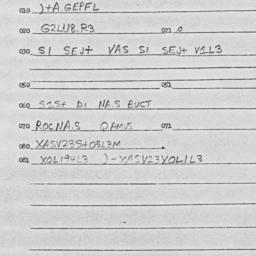 010 )+A.GEPFL
020 G2LU8.R3 021 .0
030 SI SEJ+ VAS SI SEJ+ V1L3
050 051
060 S2S+ DI NA.S BUCT
070 ROCNA.S QAMUS 072
080 XASV23S+05L3M
081 XOL194L3 )-XASV23XOL1L3